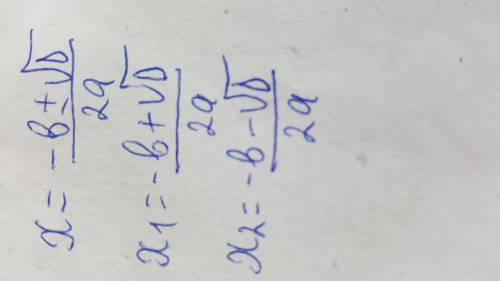 x = -b ± √D / 2a
x1 = -b + √D / 2a
x2 = -b - √D / 2a